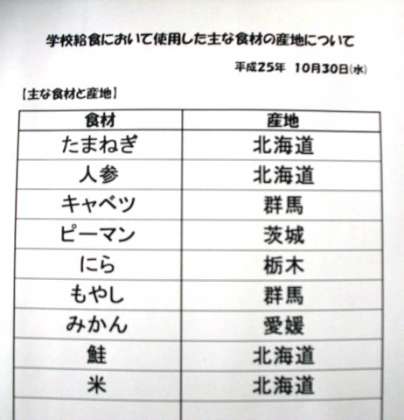 学校給食において使用した主な食材の産地について
平成25年 10月30日(水)
【主な食材と産地】
食材 産地
たまねぎ 北海道
人参 北海道
キャベツ 群馬
ピーマン 茨城
にら 栃木
もやし 群馬
みかん 愛媛
鮭 北海道
米 北海道